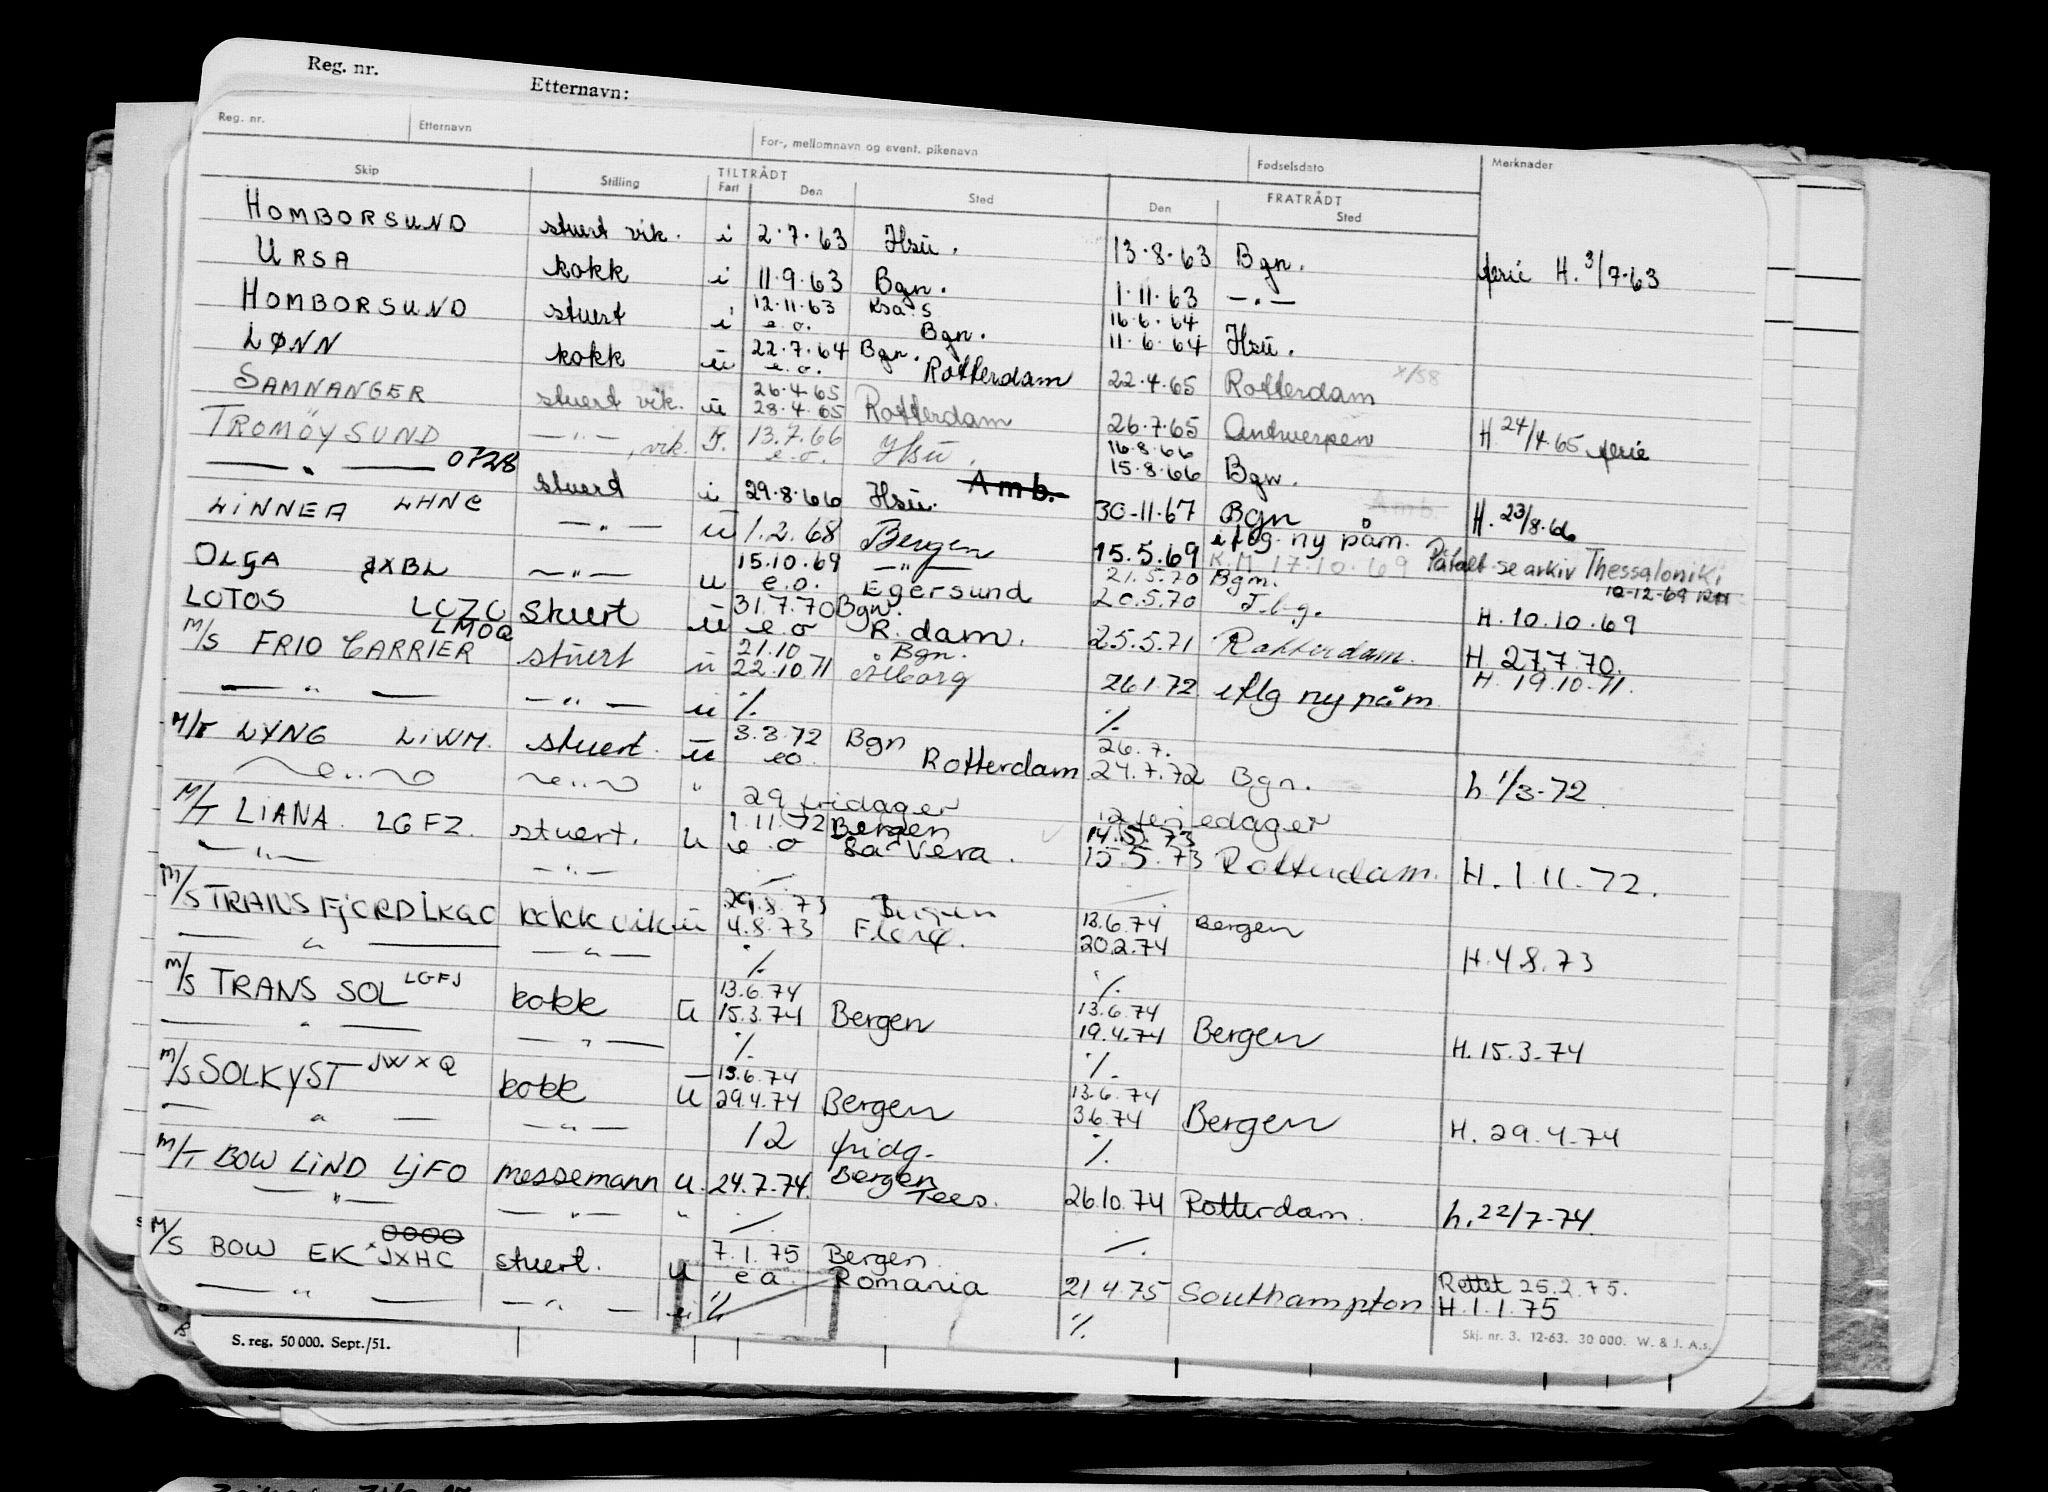 Reg. nr. Etternavn:
Reg. nr. Etternavn For-, mellomnavn og event. pikenavn Fødselsdato Merknader
Skip Stilling TILTRÅDT Fart Den Sted FRATRÅDT Den Sted
HOMBORSUND stuert vik. i 2.7.63 Hsu. 13.8.63 Bgn. ferie H. 3/7-63
URSA kokk i 11.9.63 Bgn. 1.11.63 — " —
HOMBORSUND stuert i 12.11.63 e.o. Ksa. S Bgn. 16.6.64 11.6.64 Hsu.
LØNN kokk u 22.7.64 e.o. Bgn. Rotterdam 22.4.65 Rotterdam x/58
SAMNANGER stuert vik. u 26.4.65 28.4.65 Rotterdam 26.7.65 Antwerpen H 24/4.65 ferie
TROMÖYSUND — " —, vik. 13.7.66 e.o. Hsu. 16.8.66 15.8.66 Bgn.
— " — 0728 stuerd i 29.8.66 Hsu. Amb. 30-11.67 Bgn Amb. H. 23/8.66
LINNEA LHNC — " — u 1.2.68 Bergen 15.5.69 iflg. ny påm. K.M. 17.10.69 Påtalt se arkiv Thessaloniki
OLGA JXBL — " — u 15.10.69 e.o. — " — Egersund 21.5.70 20.5.70 Bgn. T.b.g. 10-12-69 H. 10.10.69
LOTOS LCZO stuert u 31.7.70 e.o Bgn. R.dam. 25.5.71 Rotterdam. H. 27.7.70.
M/S FRIO CARRIER LMOQ stuert u 21.10 22.10.71 Bgn. Ålborg 26.1.72 iflg ny påm H. 19.10.71.
— " — — " — u ./. ./.
M/T LYNG LIWM. stuert. u 3.3.72 eo. Bgn Rotterdam 26.7. 24.7.72 Bgn. h. 1/3-72.
— " — — " — " 29 fridager 12 feriedager
M/T LIANA. LGFZ. stuert. u 1.11.72 e.o Bergen Sa Vera. 14.5.73 15.5.73 Rotterdam. H. 1.11.72.
— " — — " — ./. ./.
M/S TRANS FJORD LKGC kokk vik u 29.8.73 4.8.73 Bergen Florø. 13.6.74 20.2.74 Bergen H. 4.8.73
— " — — " — ./. ./.
M/S TRANS SOL LGFJ kokk u 13.6.74 15.3.74 Bergen 13.6.74 19.4.74 Bergen H. 15.3.74
— " — — " — ./. ./.
M/S SOLKYST JWXQ kokk u 13.6.74 29.4.74 Bergen 13.6.74 3.6.74 Bergen H. 29.4.74
— " — — " — 12 fridg. ./.
M/T BOW LIND LJFO messemann u. 24.7.74 Bergen Tees. 26.10.74 Rotterdam. h. 22/7-74.
— " — — " — " ./. ./.
M/S BOW EK OOOO JXHC stuert. u 7.1.75 e.a. Bergen Romania 21.4.75 Southampton Rettet 25.2.75. H. 1.1.75
— " — — " — u ./. ./.
S. reg. 50 000. Sept./51. Skj. nr. 3. 12-63. 30 000. W. & J. A.s.